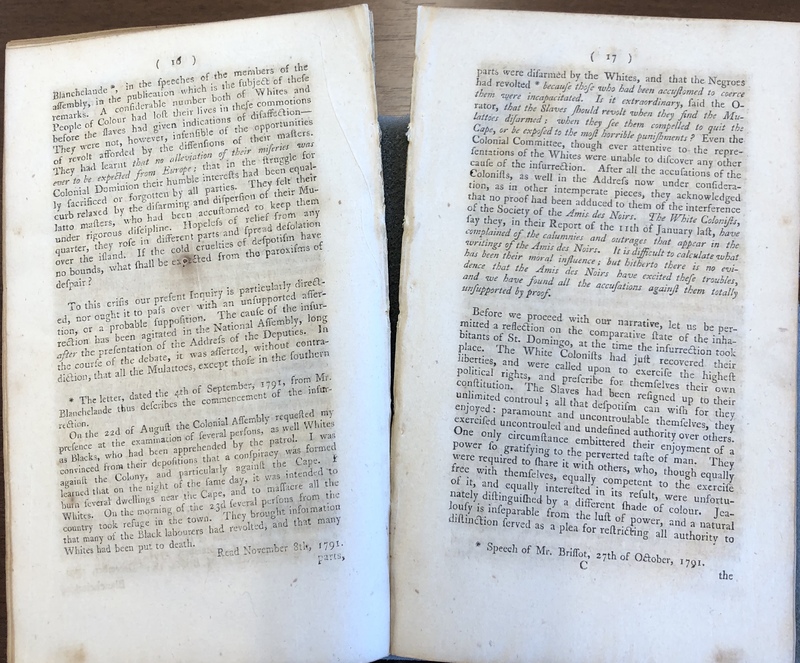 ( 16 )
Blanchelaude *, in the ſpeeches of the members of the
aſſembly, in the publication which is the ſubject of theſe
remarks. A conſiderable number both of Whites and
People of Colour had loſt their lives in theſe commotions
before the ſlaves had given indications of diſaffection—
They were not, however, inſenſible of the opportunities
of revolt afforded by the diſſenſions of their maſters.
They had learnt that no alleviation of their miſeries was
ever to be expected from Europe; that in the ſtruggle for
Colonial Dominion their humble intereſts had been equal-
ly ſacrificed or forgotten by all parties. They felt their
curb relaxed by the diſarming and diſperſion of their Mu-
latto maſters, who had been accuſtomed to keep them
under rigorous diſcipline. Hopeleſs of relief from any
quarter, they roſe in different parts and ſpread deſolation
over the iſland. If the cold cruelties of deſpotiſm have
no bounds, what ſhall be expected from the paroxiſms of
deſpair?
To this criſis our preſent Inquiry is particularly direct-
ed, nor ought it to paſs over with an unſupported aſſer-
tion, or a probable ſuppoſition. The cauſe of the inſur-
rection has been agitated in the National Aſſembly, long
after the preſentation of the Addreſs of the Deputies. In
the courſe of the debate, it was aſſerted, without contra-
diction, that all the Mulattoes, except thoſe in the ſouthern
* The letter, dated the 4th of September, 1791, from Mr.
Blanchelaude thus deſcribes the commencement of the inſur-
rection.
On the 22d of Auguſt the Colonial Aſſembly requeſted my
preſence at the examination of ſeveral perſons, as well Whites
as Blacks, who had been apprehended by the patrol. I was
convinced from their depoſitions that a conſpiracy was formed
againſt the Colony, and particularly againſt the Cape. I
learned that on the night of the ſame day, it was intended to
burn ſeveral dwellings near the Cape, and to maſſacre all the
Whites. On the morning of the 23d ſeveral perſons from the
country took refuge in the town. They brought information
that many of the Black labourers had revolted, and that many
Whites had been put to death.
Read November 8th, 1791.
parts,
( 17 )
parts were diſarmed by the Whites, and that the Negroes
had revolted * becauſe thoſe who had been accuſtomed to coerce
them were incapacitated. Is it extraordinary, ſaid the O-
rator, that the Slaves ſhould revolt when they find the Mu-
lattoes diſarmed; when they ſee them compelled to quit the
Cape, or be expoſed to the moſt horrible puniſhments? Even the
Colonial Committee, though ever attentive to the repre-
ſentations of the Whites were unable to diſcover any other
cauſe of the inſurrection. After all the accuſations of the
Coloniſts, as well in the Addreſs now under conſidera-
tion, as in other intemperate pieces, they acknowledged
that no proof had been adduced to them of the interference
of the Society of the Amis des Noirs. The White Coloniſts,
ſay they, in their Report of the 11th of January laſt, have
complained of the calumnies and outrages that appear in the
writings of the Amis des Noirs. It is difficult to calculate what
has been their moral influence; but hitherto there is no evi-
dence that the Amis des Noirs have excited theſe troubles,
and we have found all the accuſations againſt them totally
unſupported by proof.
Before we proceed with our narrative, let us be per-
mitted a reflection on the comparative ſtate of the inha-
bitants of St. Domingo, at the time the inſurrection took
place. The White Coloniſts had juſt recovered their
liberties, and were called upon to exerciſe the higheſt
political rights, and preſcribe for themſelves their own
conſtitution. The Slaves had been reſigned up to their
unlimited controul; all that deſpotiſm can wiſh for they
enjoyed: paramount and uncontroulable themſelves, they
exerciſed uncontrouled and undefined authority over others.
One only circumſtance embittered their enjoyment of a
power ſo gratifying to the perverted taſte of man. They
were required to ſhare it with others, who, though equally
free with themſelves, equally competent to the exerciſe
of it, and equally intereſted in its reſult, were unfortu-
nately diſtinguiſhed by a different ſhade of colour. Jea-
louſy is inſeparable from the luſt of power, and a natural
diſtinction ſerved as a plea for reſtricting all authority to
* Speech of Mr. Briſſot, 27th of October, 1791.
C
the